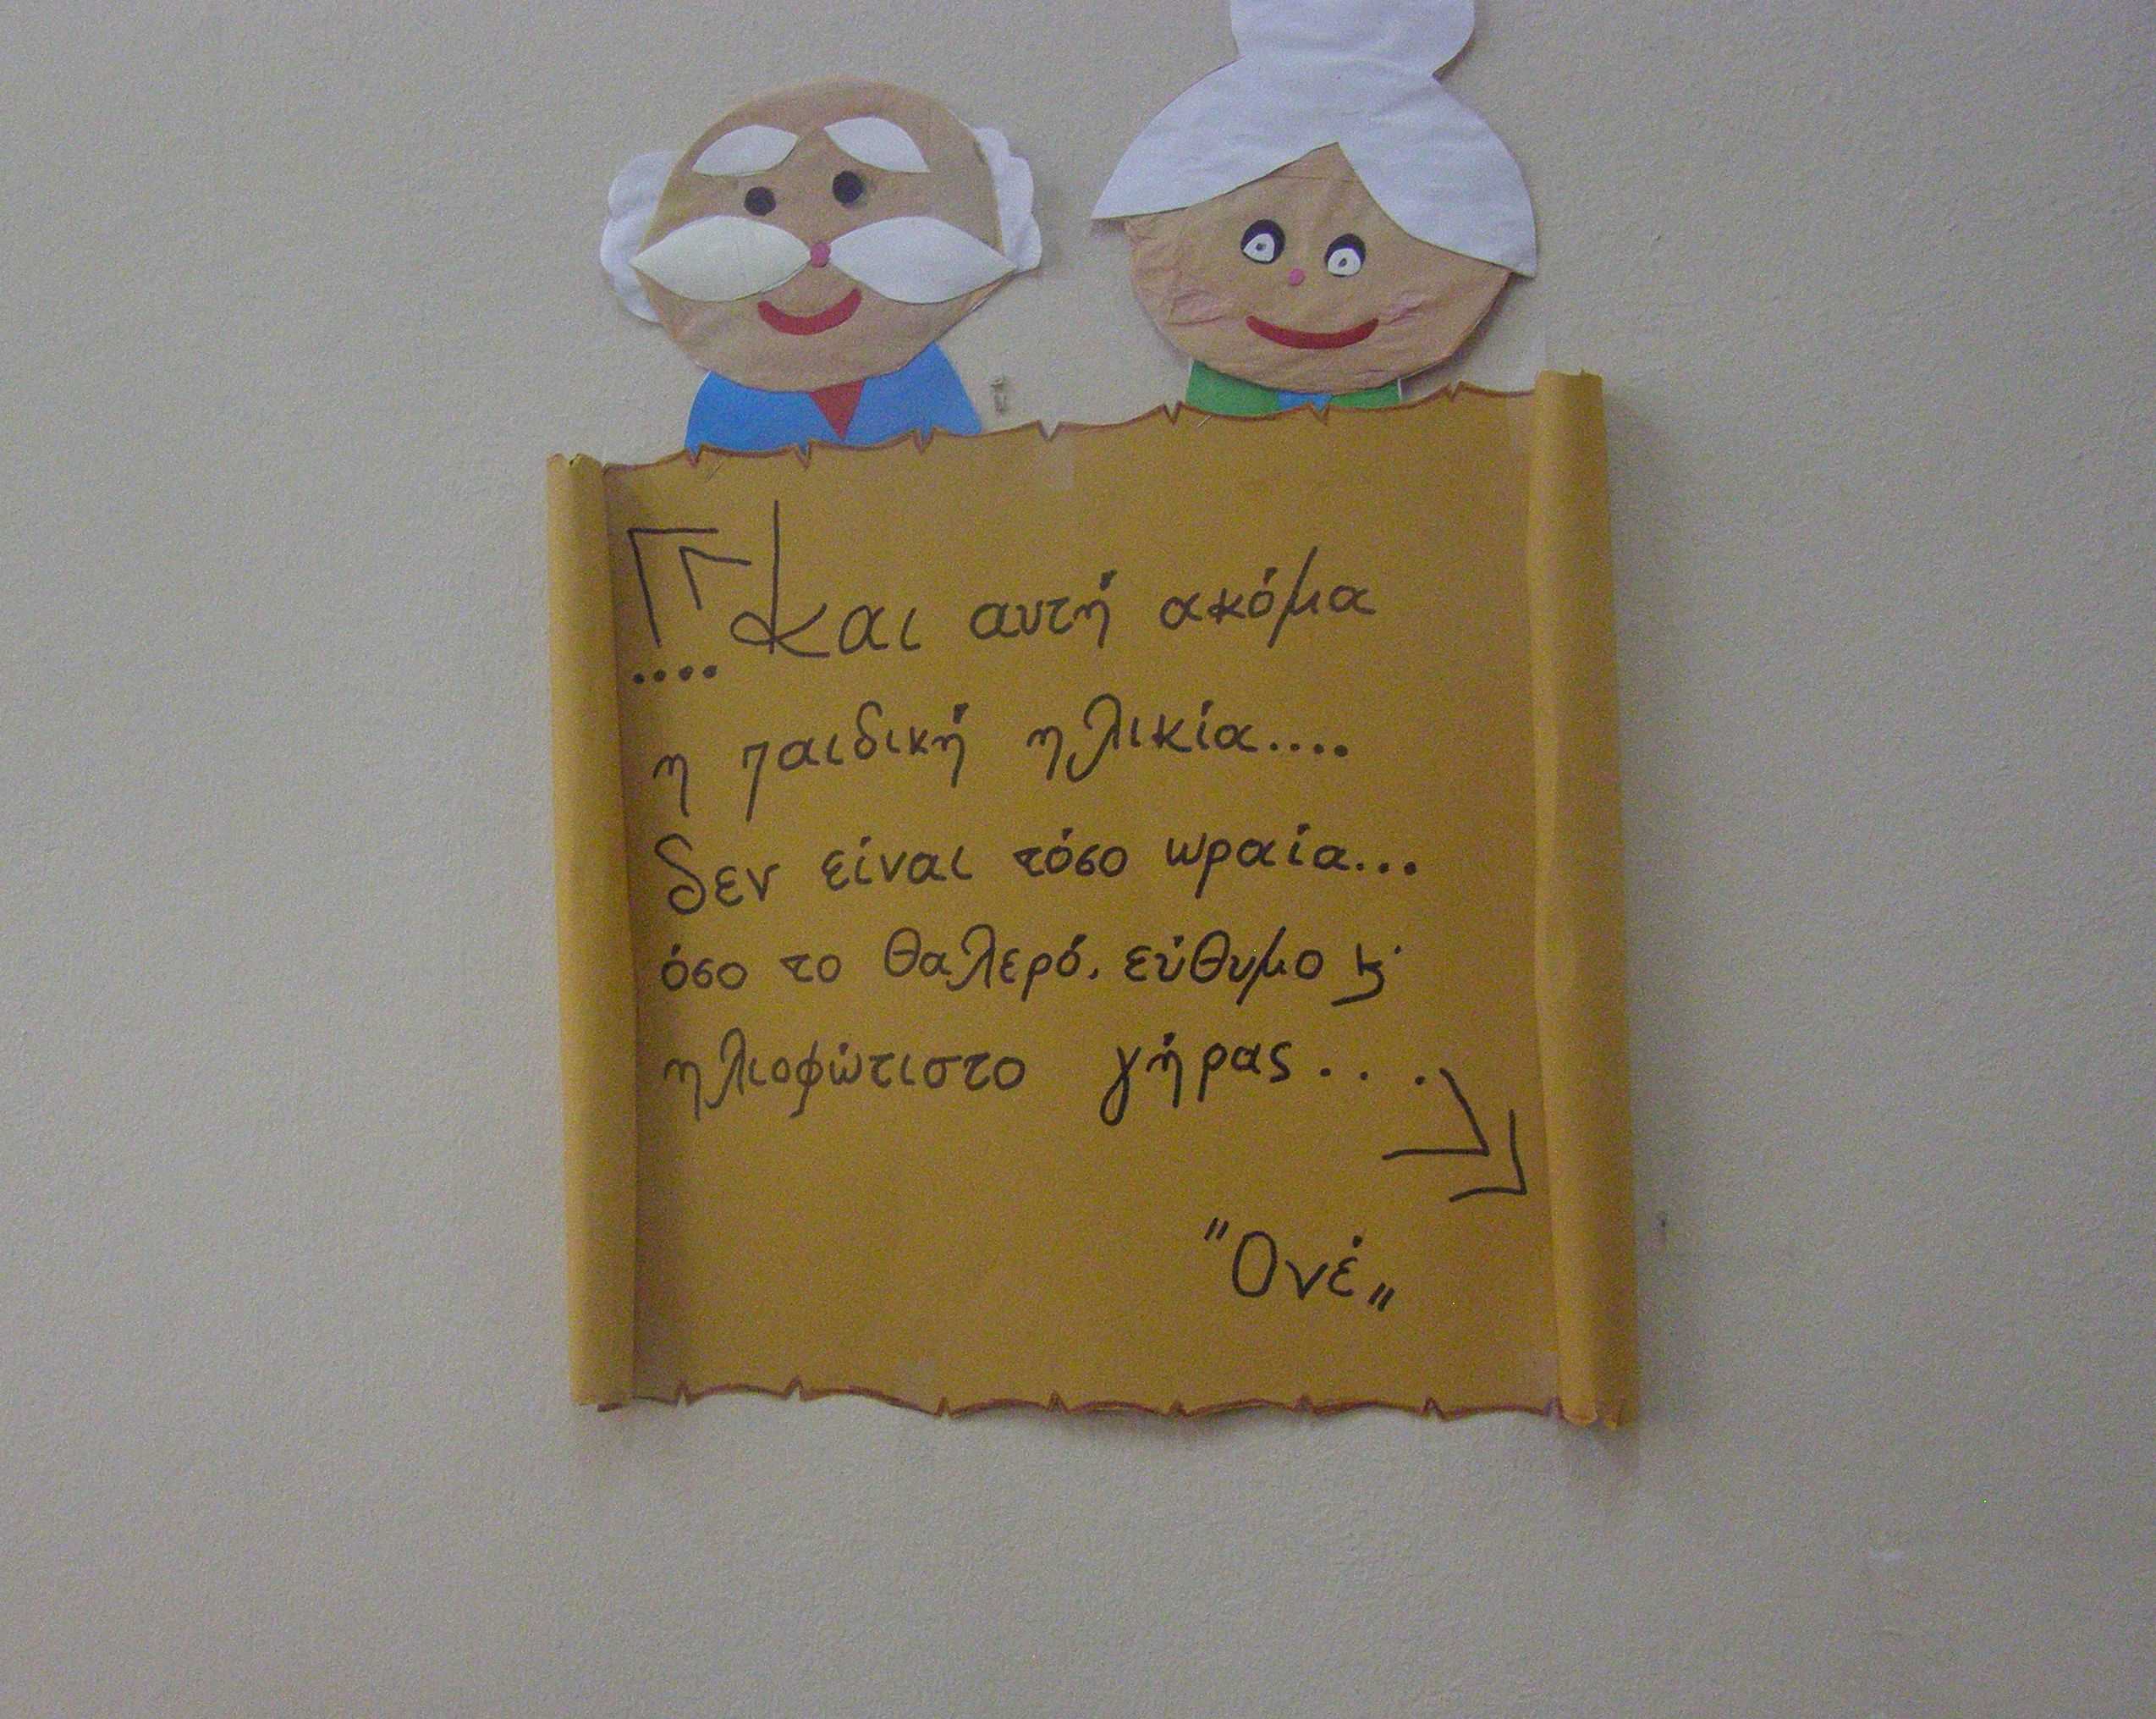 «.... Και αυτή ακόμα
η παιδική ηλικία....
δεν είναι τόσο ωραία...
όσο το θαλερό, εύθυμο κ'
ηλιοφώτιστο γήρας...»
"Ονέ„